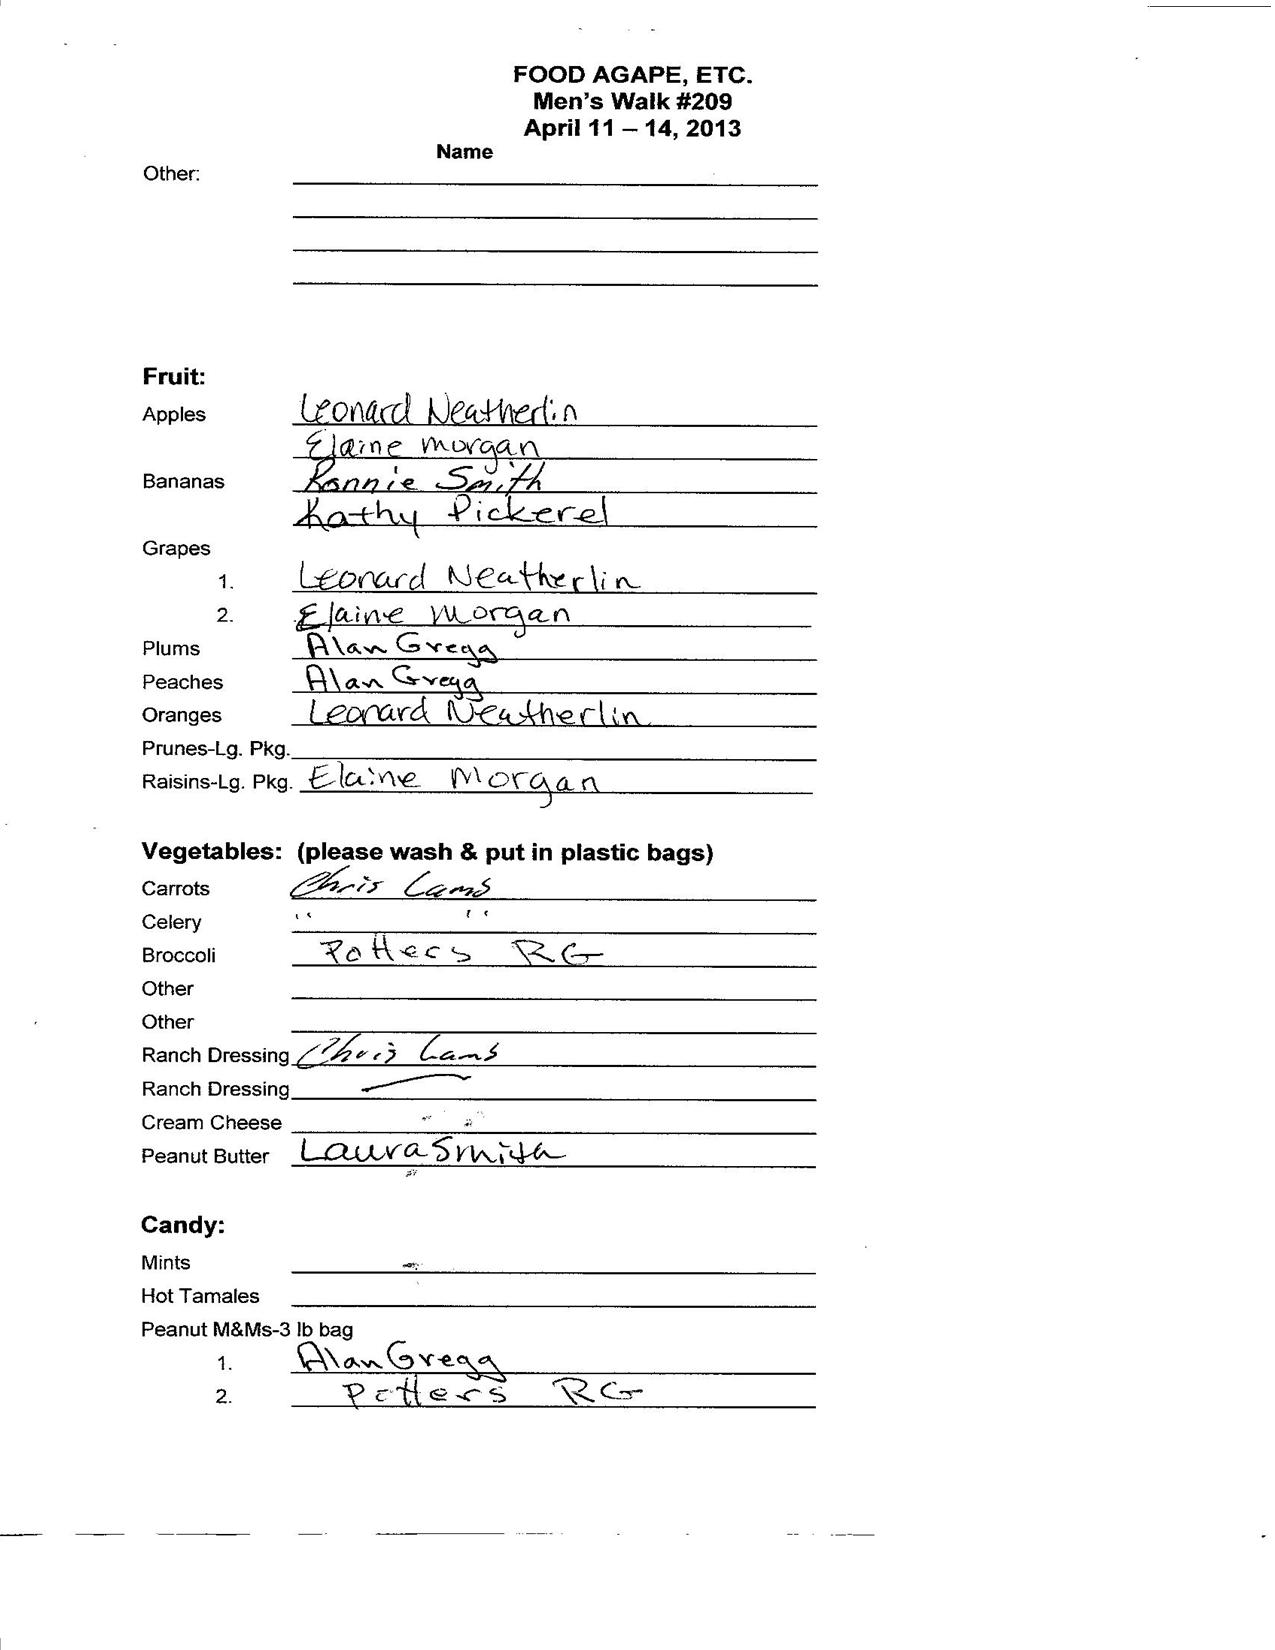 FOOD AGAPE, ETC.
Men's Walk #209
April 11 – 14, 2013
Name
Other:
Fruit:
Apples Leonard Neatherlin
Elaine Morgan
Bananas Ronnie Smith
Kathy Pickerel
Grapes
1. Leonard Neatherlin
2. Elaine Morgan
Plums Alan Gregg
Peaches Alan Gregg
Oranges Leonard Neatherlin
Prunes-Lg. Pkg.
Raisins-Lg. Pkg. Elaine Morgan
Vegetables: (please wash & put in plastic bags)
Carrots Chris Lamb
Celery " "
Broccoli Potters RG
Other
Other
Ranch Dressing Chris Lamb
Ranch Dressing —
Cream Cheese
Peanut Butter Laura Smith
Candy:
Mints
Hot Tamales
Peanut M&Ms-3 lb bag
1. Alan Gregg
2. Potters RG